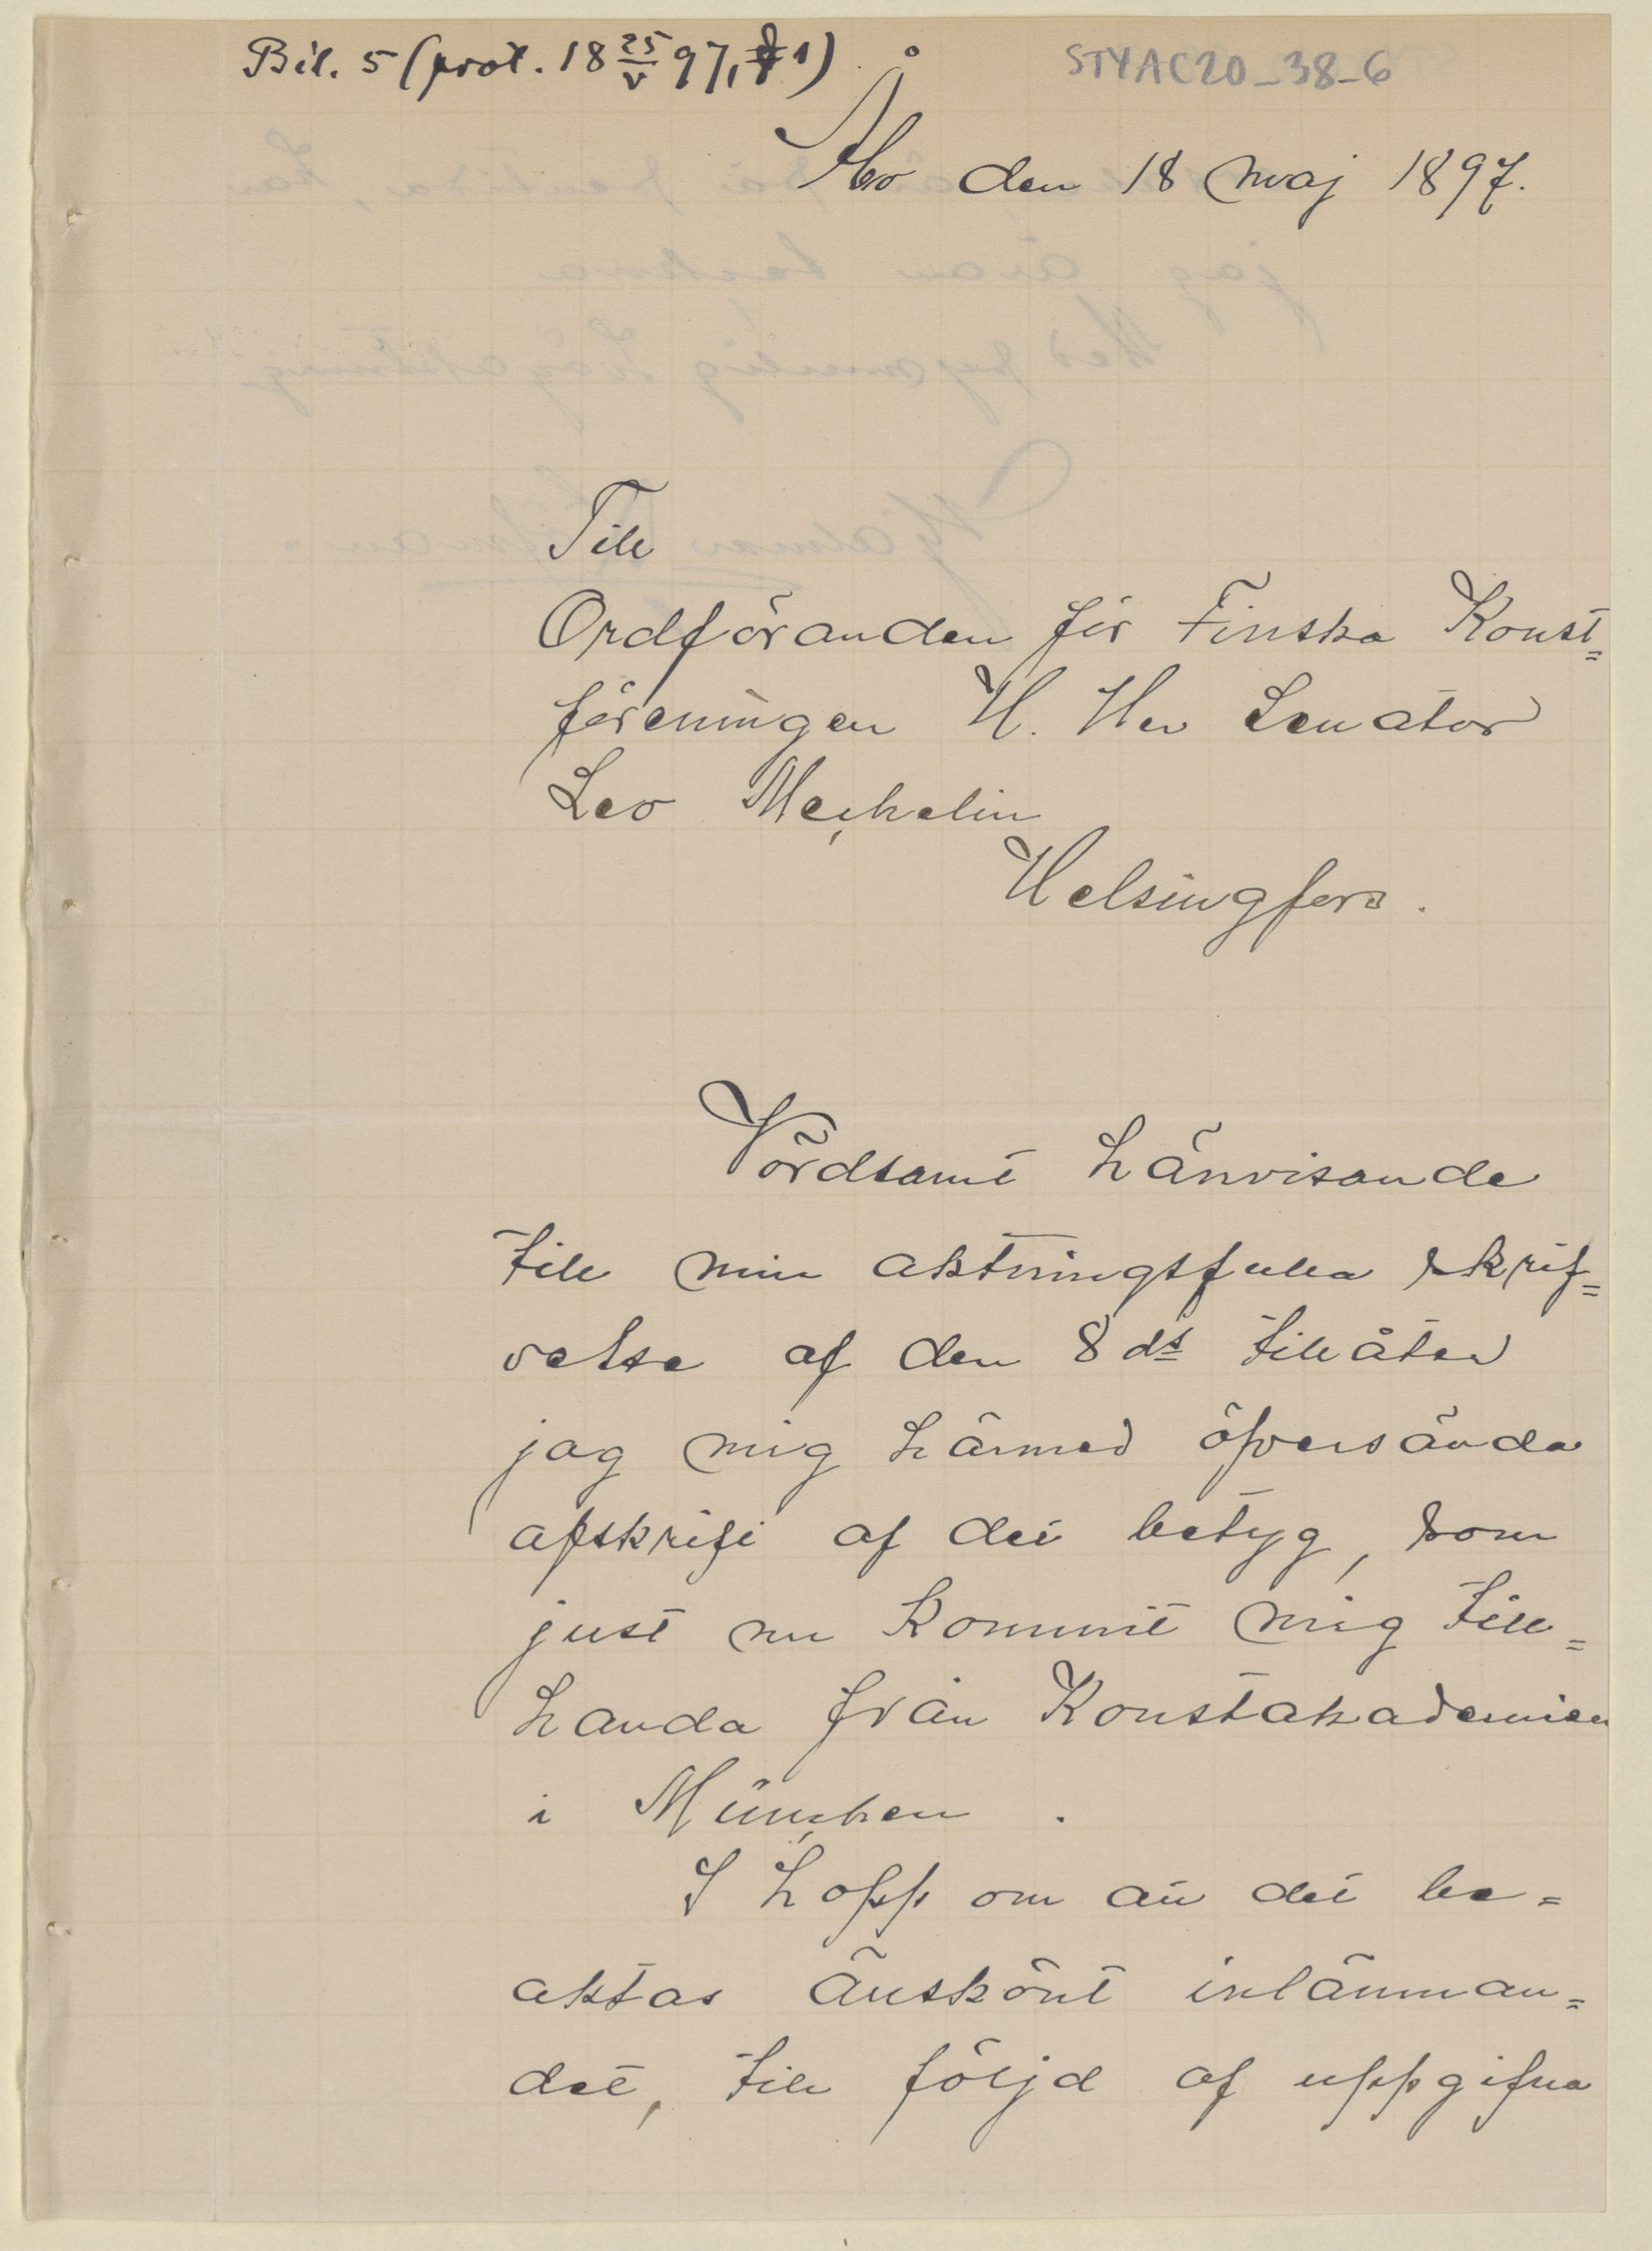 Bil. 5 (prot. 18 25/V 97, § 1)
STYAC20_38_6
Åbo den 18 maj 1897.
Till
Ordföranden för Finska Konst=
föreningen H. Herr Senator
Leo Mechelin
Helsingfors.
Vördsamt hänvisande
till min aktningsfulla skrif=
velse af den 8 ds tillåter
jag mig härmed öfversända
afskrift af det betyg, som
just nu kommit mig till=
handa från Konstakademien
i München.
I hopp om att det be=
aktas änskönt inlämnan=
det, till följd af uppgifna